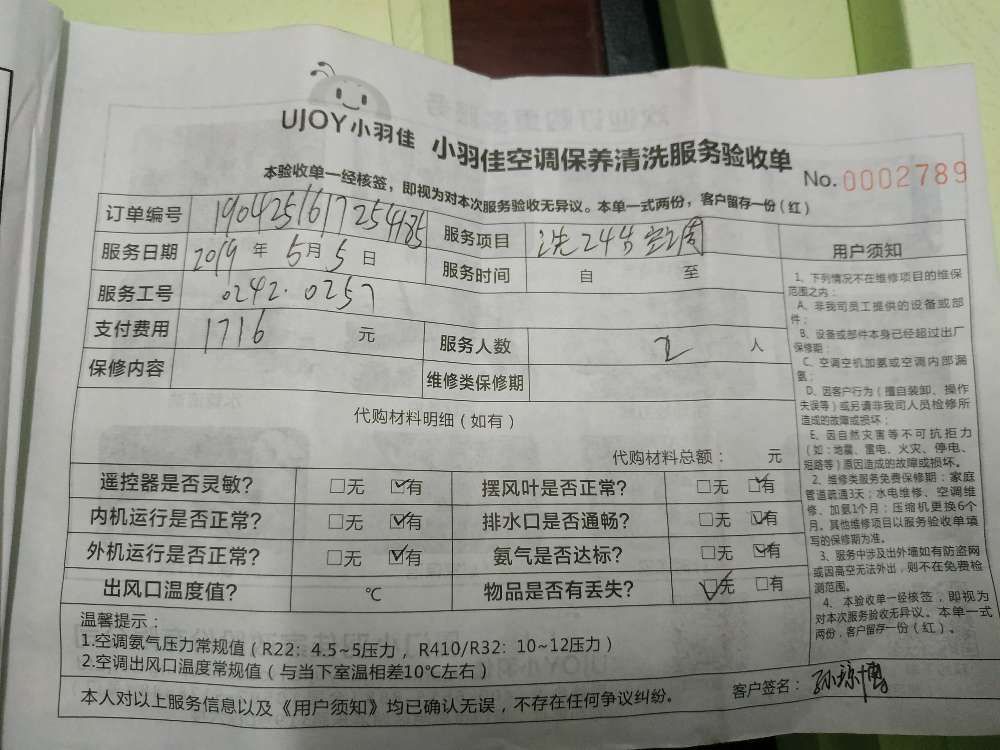 UJOY小羽佳 小羽佳空调保养清洗服务验收单
No.0002789
本验收单一经核签，即视为对本次服务验收无异议。本单一式两份，客户留存一份（红）
订单编号 服务项目 洗24台空调
服务日期 2019年5月5日 服务时间 自 至
服务工号 0242.0257
支付费用 1716 元 服务人数 2 人
保修内容 维修类保修期
代购材料明细（如有）
代购材料总额： 元
遥控器是否灵敏？ □无 ☑有 摆风叶是否正常？ □无 ☑有
内机运行是否正常？ □无 ☑有 排水口是否通畅？ □无 ☑有
外机运行是否正常？ □无 ☑有 氨气是否达标？ □无 ☑有
出风口温度值？ ℃ 物品是否有丢失？ ☑无 □有
温馨提示：
1.空调氨气压力常规值（R22：4.5~5压力，R410/R32：10~12压力）
2.空调出风口温度常规值（与当下室温相差10℃左右）
本人对以上服务信息以及《用户须知》均已确认无误，不存在任何争议纠纷。
客户签名：
用户须知
1、下列情况不在维修项目的维保
范围之内：
A、非我司员工提供的设备或部
件；
B、设备或部件本身已经超过出厂
保修期；
C、空调空机加氨或空调内部漏
氨；
D、因客户行为（擅自装卸、操作
失误等）或另请非我司人员检修所
造成的故障或损坏；
E、因自然灾害等不可抗拒力
（如：地震、雷电、火灾、停电、
短路等）原因造成的故障或损坏。
2、维修类服务免费保修期：家庭
管道疏通3天；水电维修、空调维
修、加氨1个月；压缩机更换6个
月。其他维修项目以服务验收单填
写的保修期为准。
3、服务中涉及出外墙如有防盗网
或因高空无法外出，则不在免费检
测范围。
4、本验收单一经核签，即视为
对本次服务验收无异议。本单一式
两份，客户留存一份（红）。